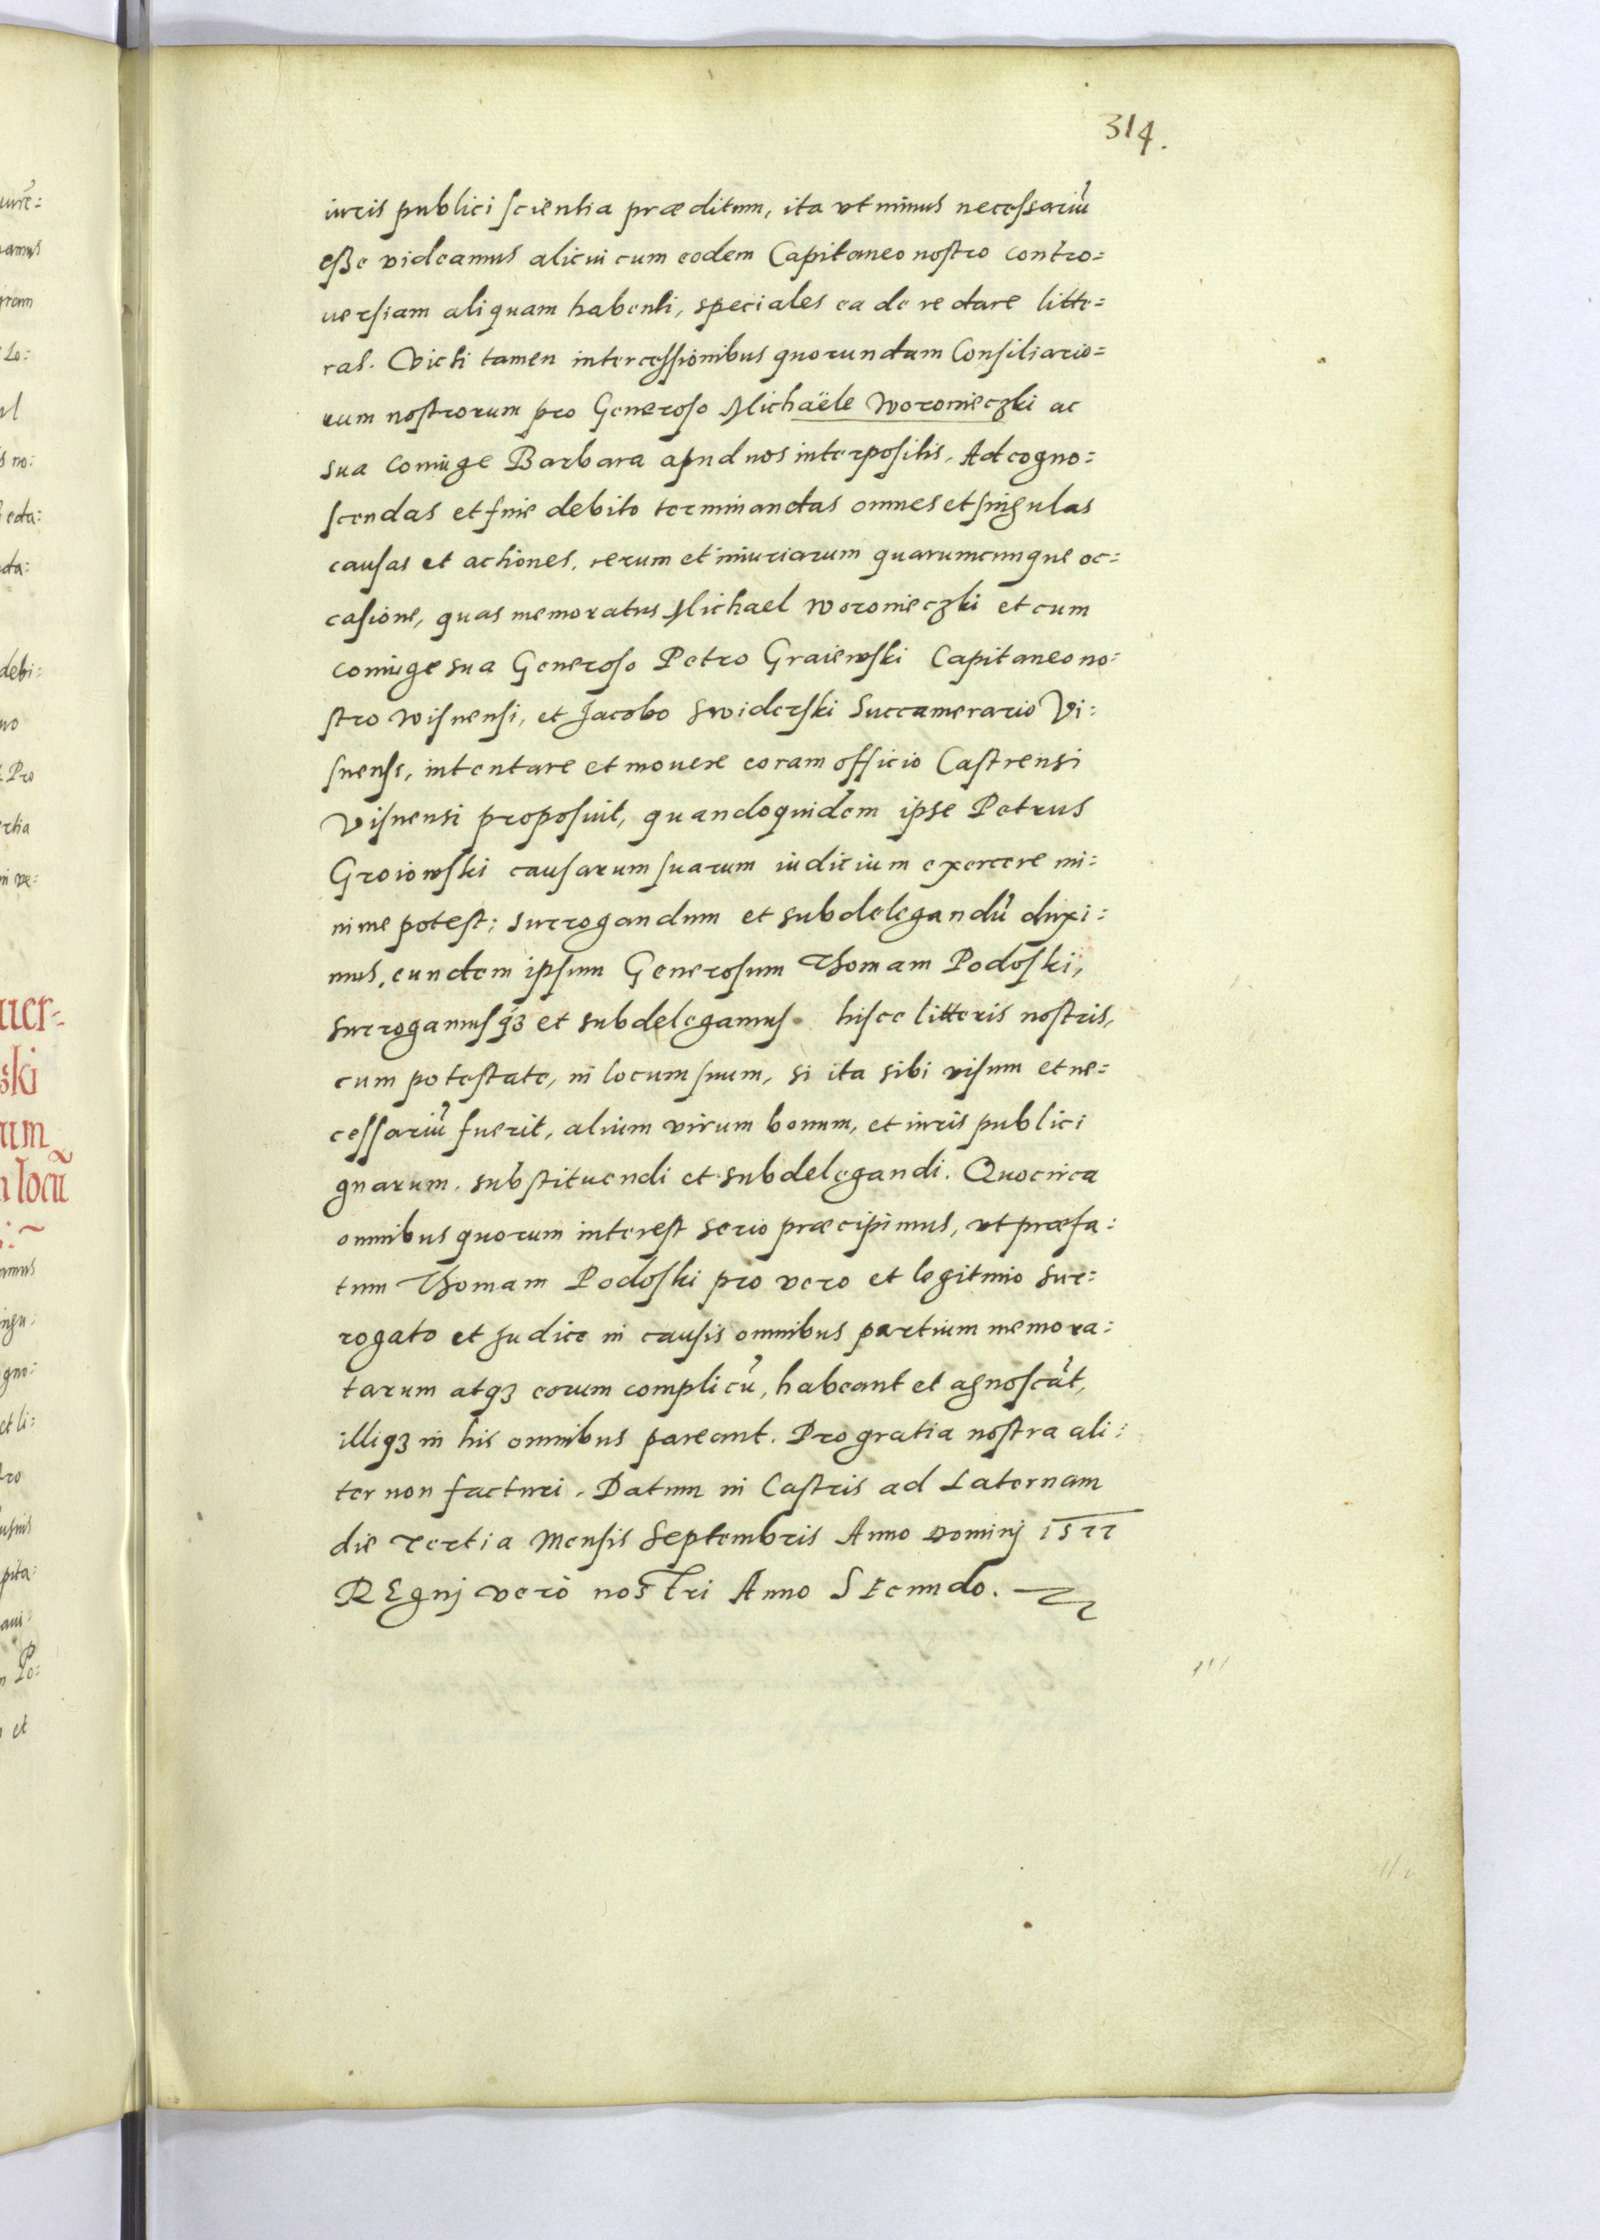 314.
iuris publici scientia præditum, ita vt minus necessariũ
esse videamus alicui cum eodem Capitaneo nostro contro=
uersiam aliquam habenti, speciales ea de re dare litte=
ras. Victi tamen intercessionibus quorundam Consiliario=
rum nostrorum pro Generoso Michaële Woronieczki ac
sua coniuge Barbara apud nos interpositis, Ad cogno=
scendas et fine debito terminandas omnes et singulas
causas et actiones, rerum et iniuriarum quarumcunque oc=
casione, quas memoratus Michael Woronieczki et cum
coniuge sua Generoso Petro Graiewski Capitaneo no=
stro Wisnensi, et Jacobo Swiderski Succamerario Vi=
snensi, intentare et mouere coram officio Castrensi
Visnensi proposuit, quandoquidem ipse Petrus
Graiowski causarum suarum iudicium exercere mi=
nime potest; surrogandum et subdelegandũ duxi=
mus, eundem ipsum Generosum Thomam Podoski,
surrogamusqʒ et subdelegamus hisce litteris nostris,
cum potestate, in locum suum, si ita sibi visum et ne=
cessariũ fuerit, alium virum bonum, et iuris publici
gnarum, substituendi et subdelegandi. Quocirca
omnibus quorum interest serio præcipimus, vt præfa=
tum Thomam Podoski pro vero et legitimo sur=
rogato et Judice in causis omnibus partium memora=
tarum atqʒ eorum complicũ, habeant et agnoscãt,
illiqʒ in his omnibus pareant. Pro gratia nostra ali=
ter non facturi. Datum in Castris ad Laternam
die tertia Mensis Septembris Anno Dominj 1577
REgnj verò nostri Anno SEcundo.